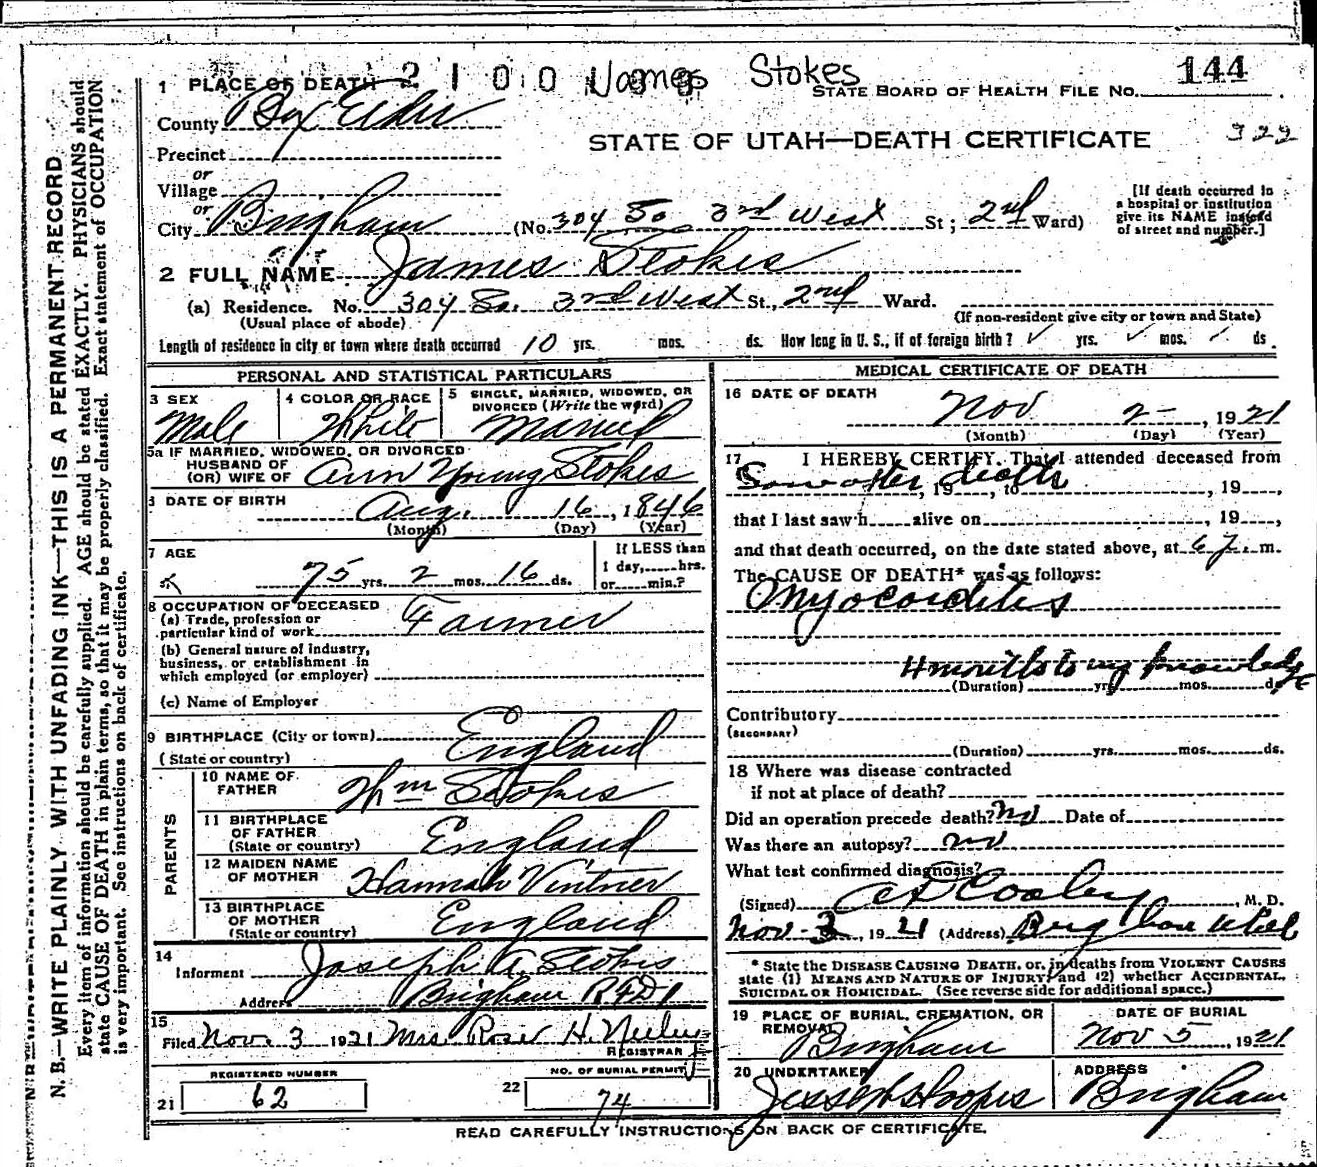 1 PLACE OF DEATH 2 1 0 0 James Stokes 144
STATE BOARD OF HEALTH FILE No.
County Box Elder
STATE OF UTAH—DEATH CERTIFICATE 322
Precinct
or
Village
or
City Brigham (No. 304 So 3rd West St; 2nd Ward)
[If death occurred in
a hospital or institution
give its NAME instead
of street and number.]
2 FULL NAME James Stokes
(a) Residence. No. 304 So. 3rd West St., 2nd Ward.
(Usual place of abode) (If non-resident give city or town and State)
Length of residence in city or town where death occurred 10 yrs. mos. ds. How long in U. S., if of foreign birth? ✓ yrs. ✓ mos. ds.
PERSONAL AND STATISTICAL PARTICULARS
3 SEX Male
4 COLOR OR RACE White
5 SINGLE, MARRIED, WIDOWED, OR
DIVORCED (Write the word)
Married
5a IF MARRIED, WIDOWED, OR DIVORCED
HUSBAND OF
(OR) WIFE OF Ann Young Stokes
DATE OF BIRTH Aug. 16, 1846
(Month) (Day) (Year)
7 AGE
75 yrs. 2 mos. 16 ds.
If LESS than
1 day, hrs.
or min.?
8 OCCUPATION OF DECEASED
(a) Trade, profession or
particular kind of work Farmer
(b) General nature of industry,
business, or establishment in
which employed (or employer)
(c) Name of Employer
9 BIRTHPLACE (City or town)
(State or country) England
PARENTS
10 NAME OF
FATHER Wm Stokes
11 BIRTHPLACE
OF FATHER
(State or country) England
12 MAIDEN NAME
OF MOTHER Hannah Vintner
13 BIRTHPLACE
OF MOTHER
(State or country) England
14
Informent Joseph T. Stokes
Address Brigham RFD 1
15
Filed Nov. 3 1921 Mrs Rose H. Neeley
REGISTRAR
REGISTERED NUMBER
21 62
NO. OF BURIAL PERMIT
22 74
MEDICAL CERTIFICATE OF DEATH
16 DATE OF DEATH
Nov 2, 1921
(Month) (Day) (Year)
17 I HEREBY CERTIFY, That I attended deceased from
Saw after death, 19, to, 19,
that I last saw h alive on, 19,
and that death occurred, on the date stated above, at 6 m.
The CAUSE OF DEATH* was as follows:
Myocarditis
4 months to my knowledge
(Duration) yrs. mos. ds.
Contributory
(SECONDARY)
(Duration) yrs. mos. ds.
18 Where was disease contracted
if not at place of death?
Did an operation precede death? no Date of
Was there an autopsy? no
What test confirmed diagnosis?
(Signed) Cooley, M. D.
Nov-3, 1921 (Address) Brigham Utah
* State the DISEASE CAUSING DEATH, or, in deaths from VIOLENT CAUSES
state (1) MEANS AND NATURE OF INJURY; and (2) whether ACCIDENTAL,
SUICIDAL OR HOMICIDAL. (See reverse side for additional space.)
19 PLACE OF BURIAL, CREMATION, OR
REMOVAL
Brigham
DATE OF BURIAL
Nov 5, 1921
20 UNDERTAKER
ADDRESS
Brigham
READ CAREFULLY INSTRUCTIONS ON BACK OF CERTIFICATE.
N. B.—WRITE PLAINLY WITH UNFADING INK—THIS IS A PERMANENT RECORD
Every item of information should be carefully supplied. AGE should be stated EXACTLY. PHYSICIANS should
state CAUSE OF DEATH in plain terms, so that it may be properly classified. Exact statement of OCCUPATION
is very important. See instructions on back of certificate.